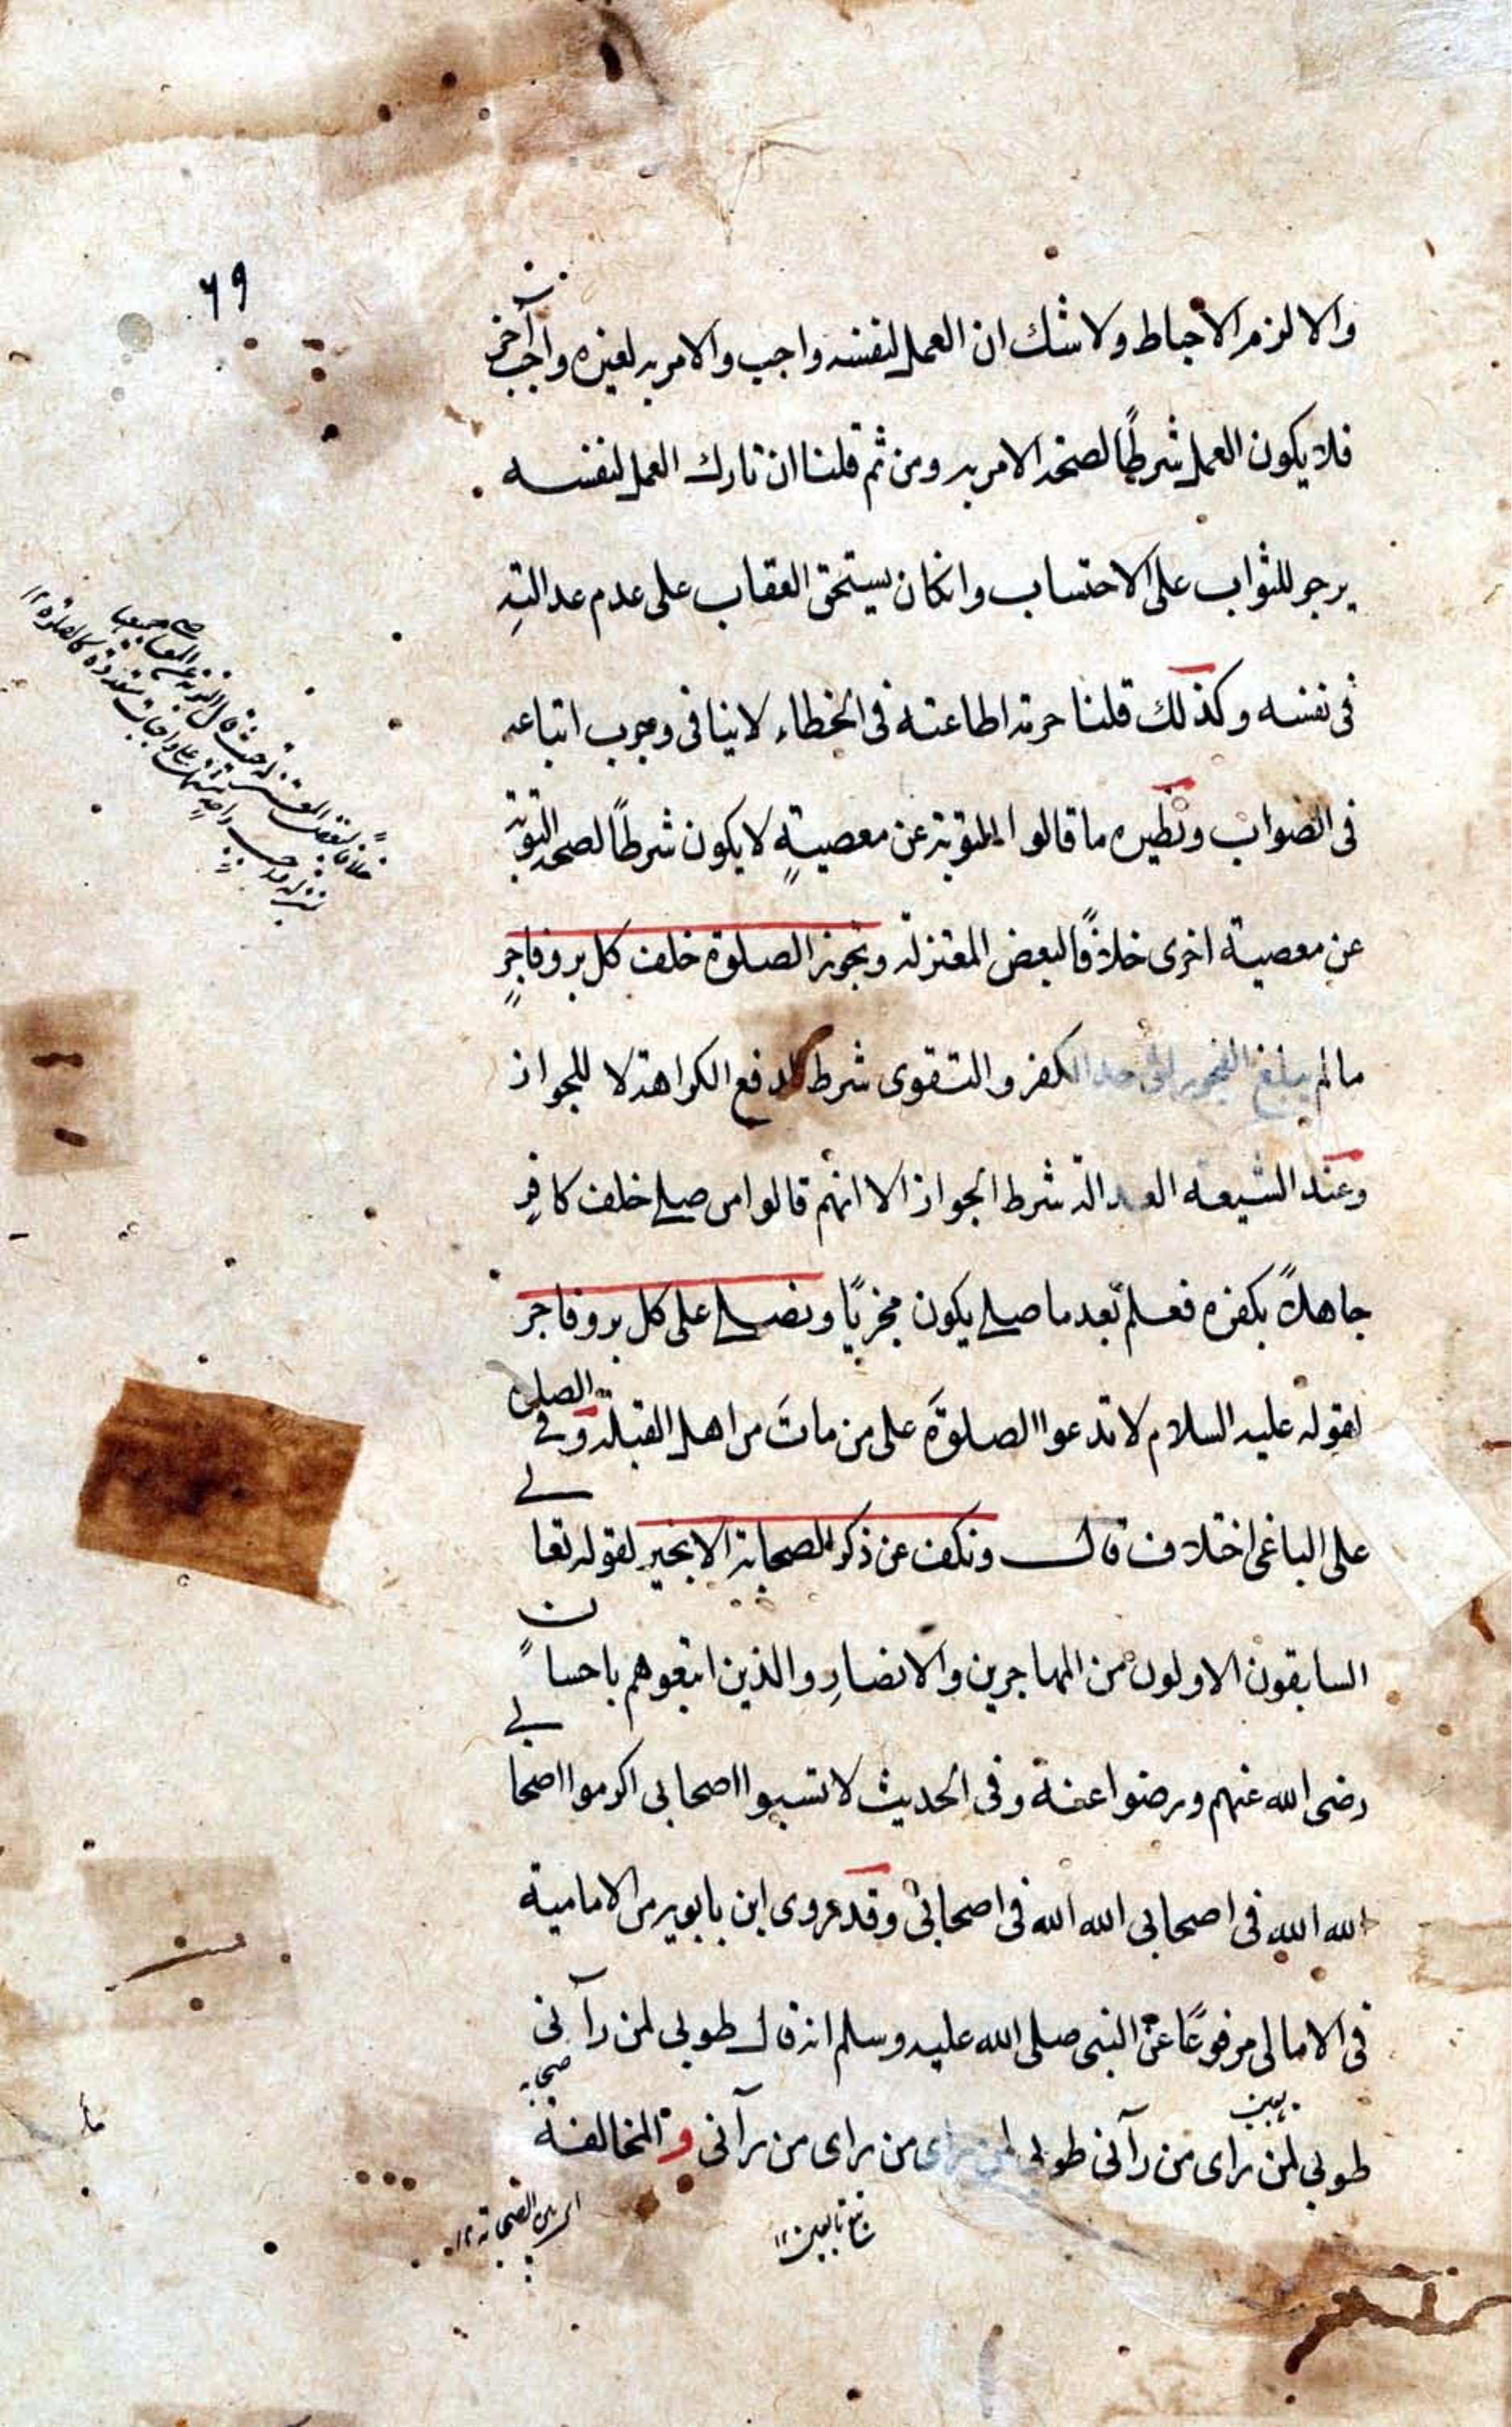 ٦٩
والا لزم الاحباط ولا شك ان العمل لنفسه واجب والامر به لغيره واجب آخر
فلا يكون العمل شرطًا لصحة الامر به ومن ثم قلنا ان تارك العمل لنفسه
يرجو للثواب على الاحتساب وانكان يستحق العقاب على عدم عدالتِه
فى نفسه وكذلك قلنا حرمة اطاعته فى الخطاء لا ينافى وجوب اتباعه
فى الصواب ونظيره ما قالوا التوبة عن معصيةٍ لا يكون شرطًا لصحة التوبة
عن معصية اخرى خلافًا لبعض المعتزلة وتجوز الصلوة خلف كل بر وفاجرٍ
مالم يبلغ الفجور الى حد الكفر والتقوى شرط لدفع الكراهة لا للجواز
وعند الشيعه العدالة شرط الجواز الا انهم قالوا من صلے خلف كافرٍ
جاهلاً بكفره فعلم بعد ما صلے يكون مجزيًا ونصلے على كل بر وفاجر
لقوله عليه السلام لا تدعوا الصلوةَ على من ماتَ من اهل القبلة وفے الصلوة
على الباغى اختلاف قال ونكف عن ذكر الصحابة الا بخير لقوله تعالے
السابقون الاولون من المهاجرين والانصارِ والذين اتبعوهم باحسانٍ
رضى الله عنهم ورضوا عنه وفى الحديث لا تسبوا اصحابى اكرموا اصحابے
الله الله فى اصحابى الله الله فى اصحابى وقد روى ابن بابويه من الامامية
فى الامالى مرفوعًا عن النبى صلى الله عليه وسلم انه قال طوبى لمن رآنى
صحابه
تابعين
طوبى لمن راى من رآنى طوبى لمن راى من راى من رآنى و المخالفة
تبع تابعين ١٢